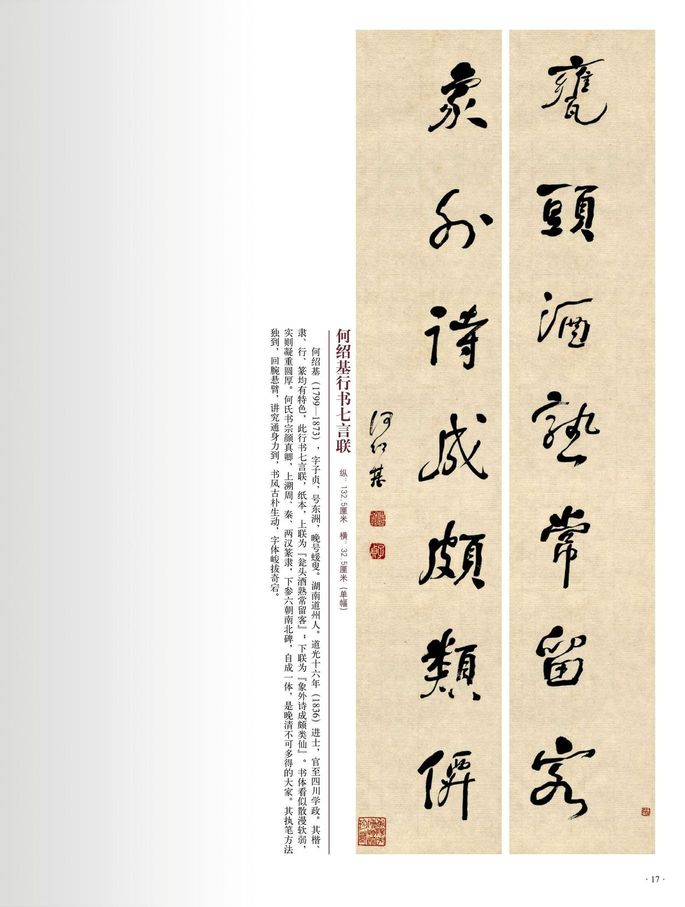 甕頭酒熟常留客
象外詩成頗類僊
何紹基
何绍基行书七言联
纵：132.5厘米 横：32.5厘米（单幅）
何绍基（1799—1873），字子贞，号东洲，晚号蝯叟。湖南道州人。道光十六年（1836）进士，官至四川学政。其楷、
隶、行、篆均有特色，此行书七言联，纸本，上联为『瓮头酒熟常留客』；下联为『象外诗成颇类仙』。书体看似散漫软弱，
实则凝重圆厚。何氏书宗颜真卿，上溯周、秦、两汉篆隶，下参六朝南北碑，自成一体，是晚清不可多得的大家。其执笔方法
独到，回腕悬臂，讲究通身力到，书风古朴生动，字体峻拔奇宕。
·17·